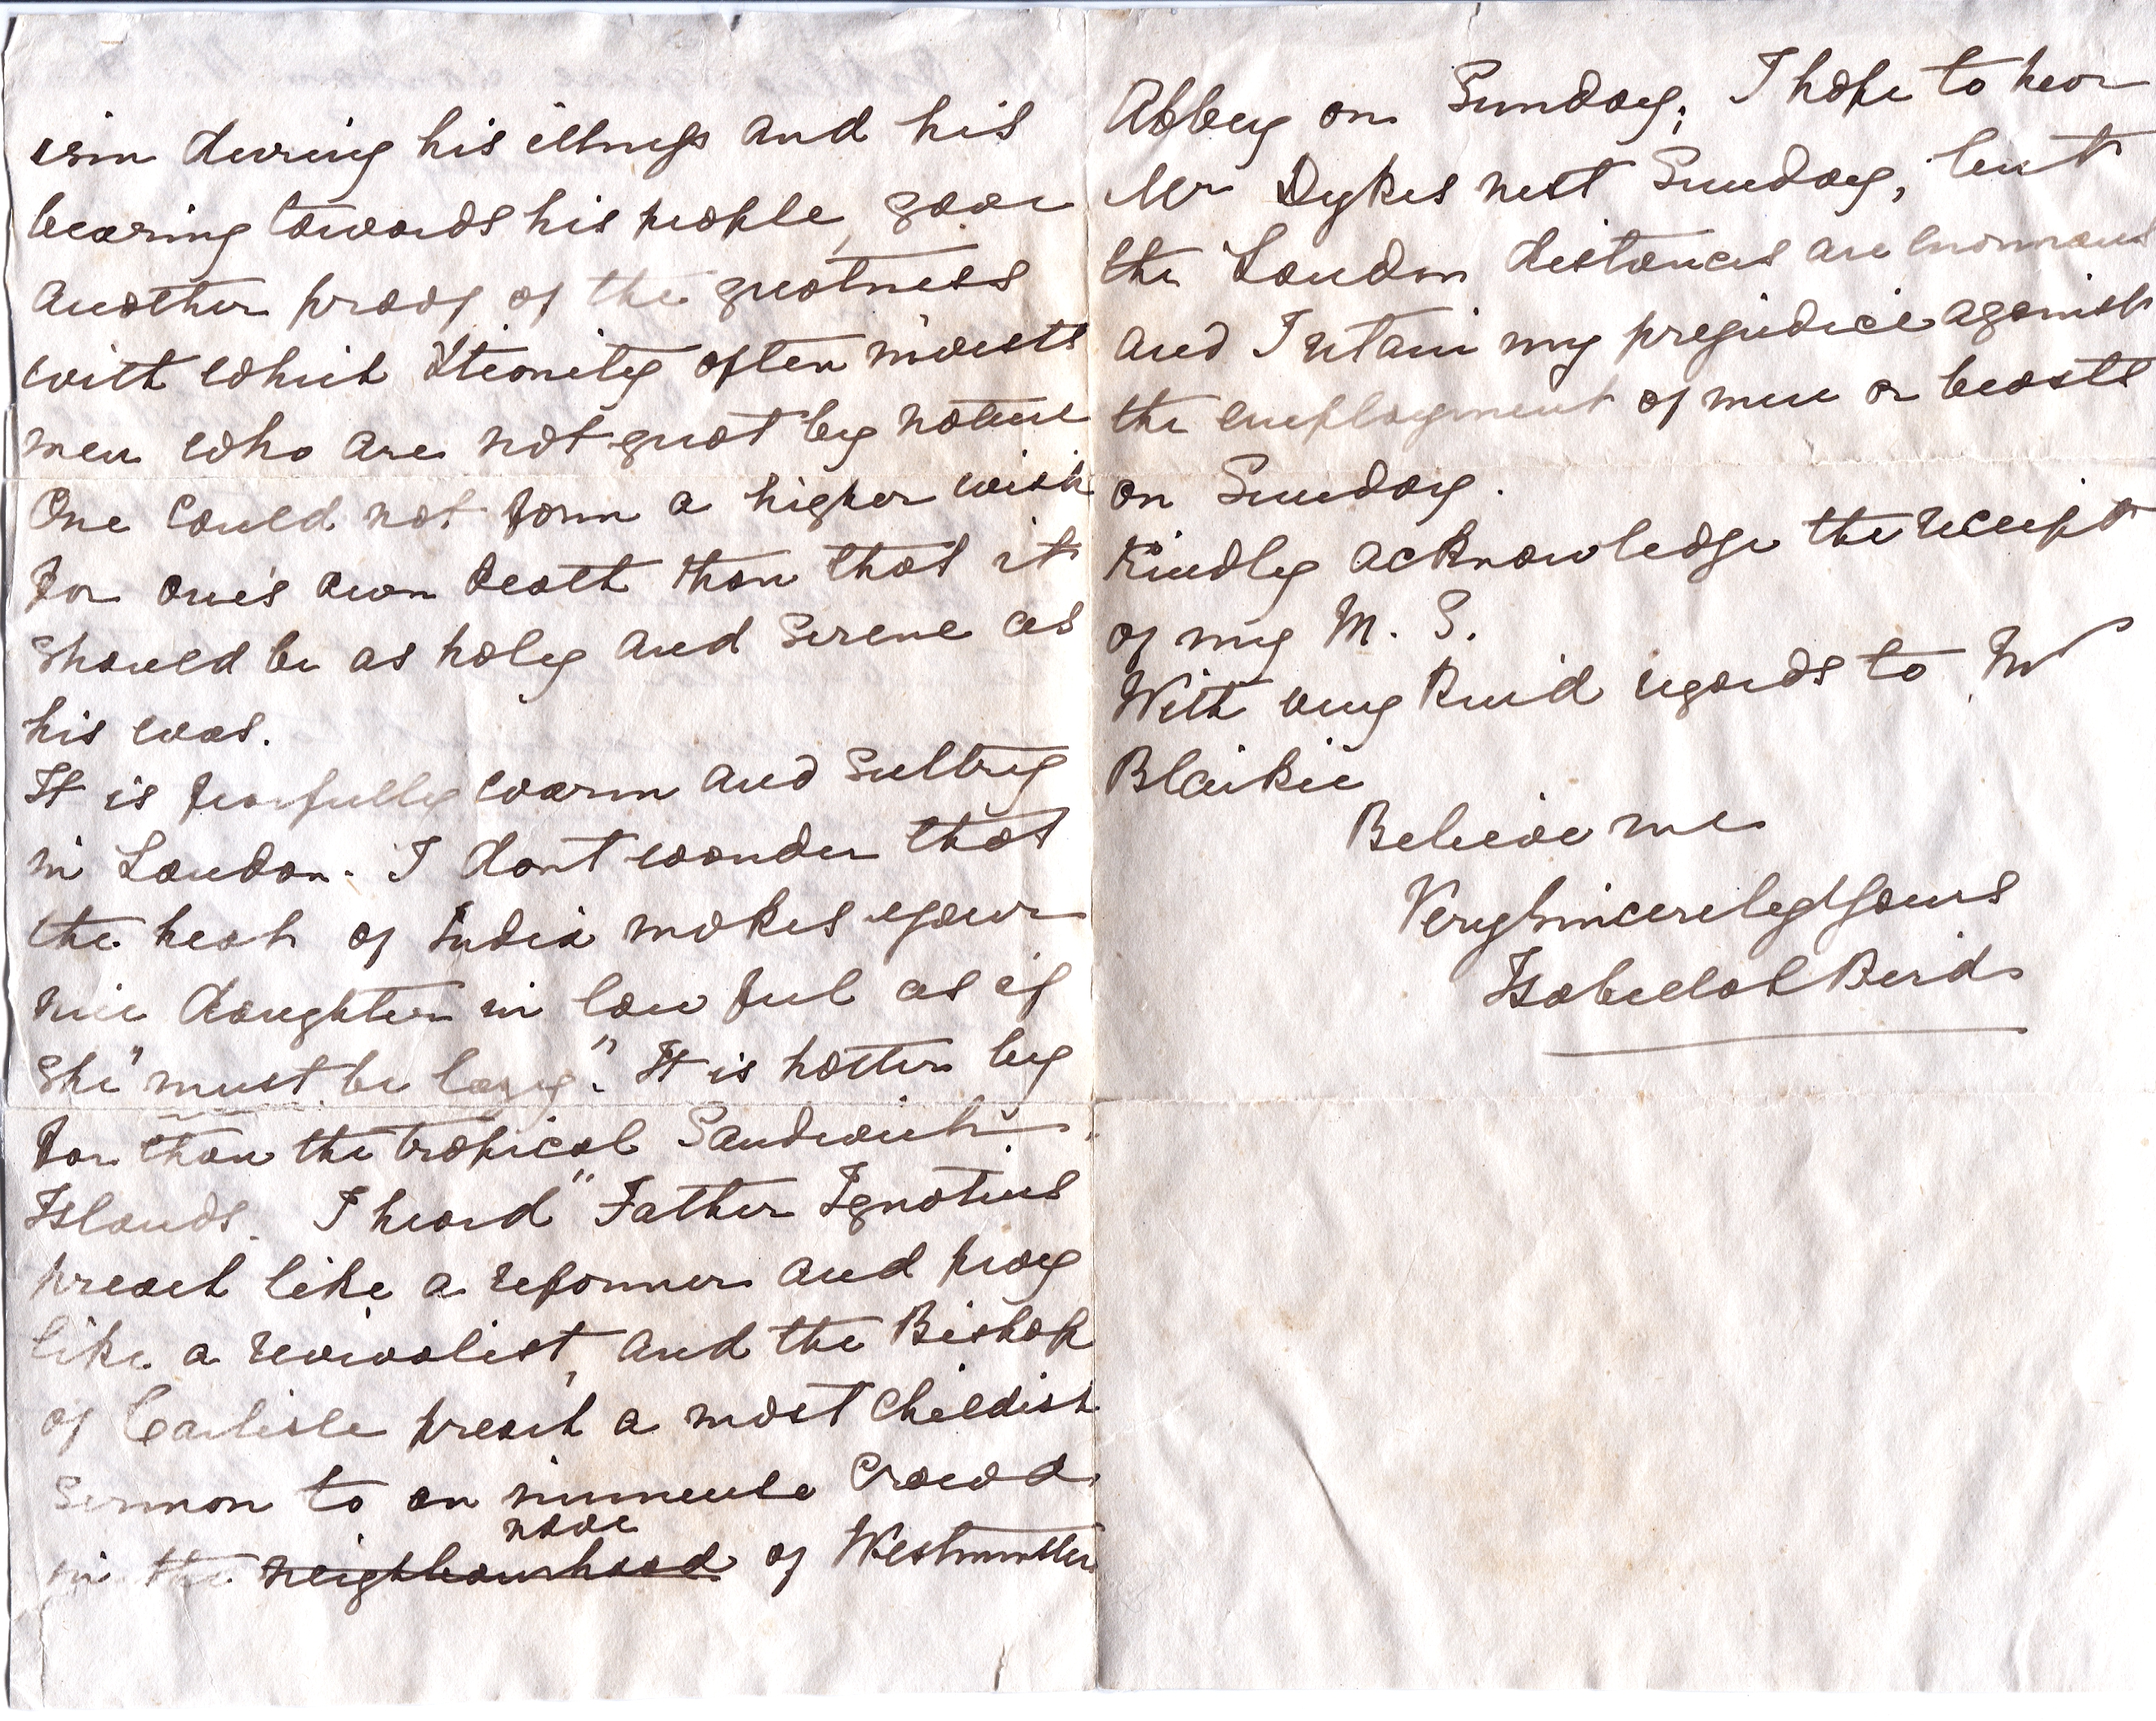 ism during his illness and his
bearing towards his people, gave
another proof of the greatness
with which Eternity often invests
men who are not great by nature
One could not form a higher wish
for one's own death than that it
should be as holy and serene as
his was.
It is fearfully warm and sultry
in London. I dont wonder that
the heat of India makes your
nice daughter in law feel as if
she "must be lazy". It is hotter by
far than the tropical Sandwich
Islands. I heard "Father Ignatius
preach like a reformer and pray
like a revivalist, and the Bishop
of Carlisle preach a most childish
sermon to an immense crowd
nave
in the neighbourhood of Westminster
Abbey on Sunday; I hope to hear
Mr Dykes next Sunday, but
the London distances are enormous
and I retain my prejudice against
the employment of men or beasts
on Sunday.
Kindly acknowledge the receipt
of my M. S.
With very kind regards to
Blaikie
Believe me
Very sincerely Yours
Isabella L Bird